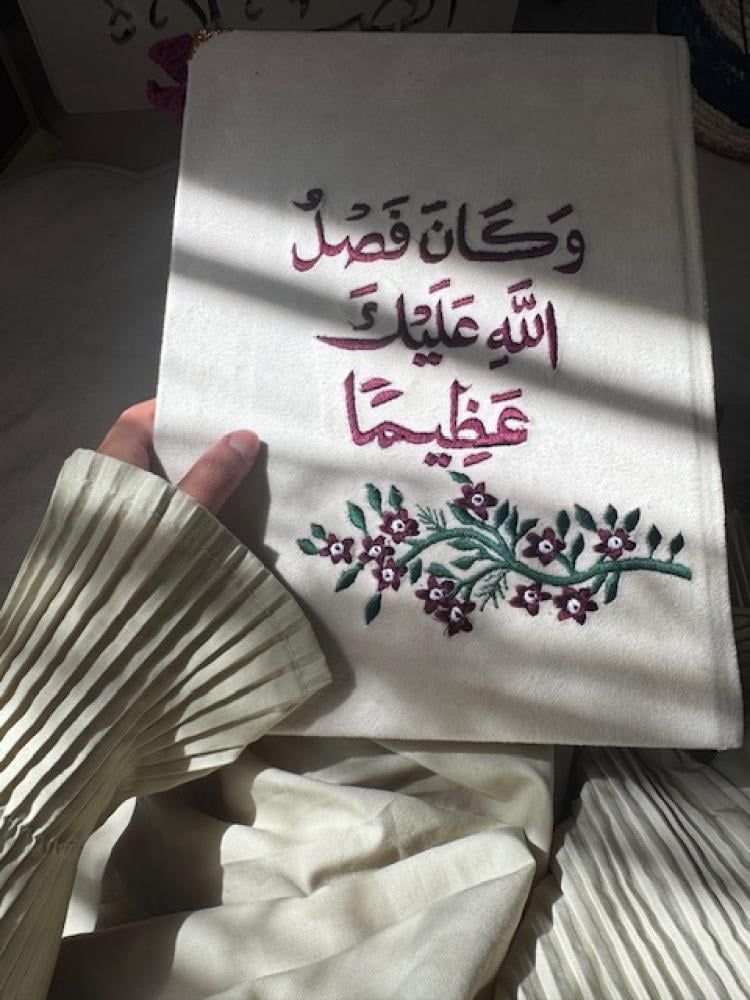 وَكَانَ فَصْلُ
اللَّهِ عَلَيْكَ
عَظِيمًا